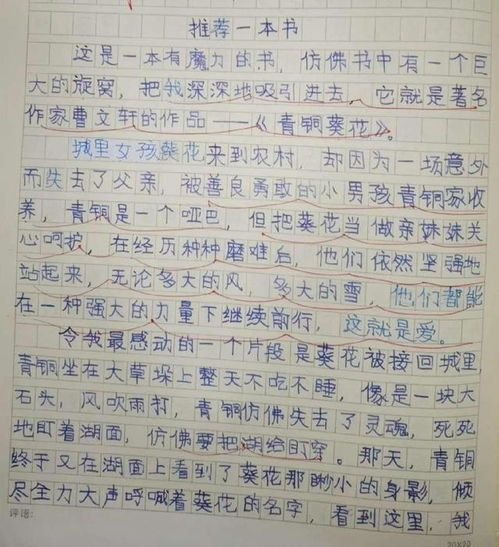 推荐一本书
这是一本有魔力的书，仿佛书中有一个巨
大的旋窝，把我深深地吸引进去，它就是著名
作家曹文轩的作品——《青铜葵花》。
城里女孩葵花来到农村，却因为一场意外
而失去了父亲，被善良勇敢的小男孩青铜家收
养，青铜是一个哑巴，但把葵花当做亲妹妹关
心呵护，在经历种种磨难后，他们依然坚强地
站起来，无论多大的风，多大的雪，他们都能
在一种强大的力量下继续前行，这就是爱。
令我最感动的一个片段是葵花被接回城里，
青铜坐在大草垛上整天不吃不睡，像是一块大
石头，风吹雨打，青铜仿佛失去了灵魂，死死
地盯着湖面，仿佛要把湖给盯穿。那天，青铜
终于又在湖面上看到了葵花那瘦小的身影，倾
尽全力大声呼喊着葵花的名字，看到这里，我
评语：
20×20